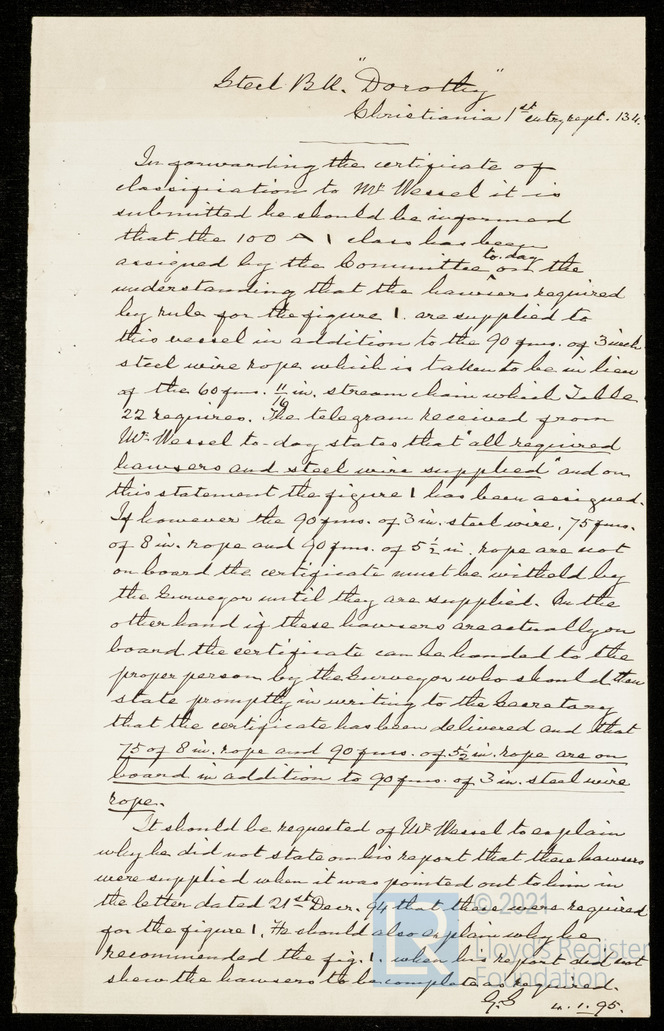 Steel Bk. "Dorothy"
Christiania 1st entry rept. 134.
In forwarding the certificate of
classification to Mr Wessel it is
submitted he should be informed
that the 100 A 1 class has been
assigned by the Committee to-day on the
understanding that the hawsers required
by rule for the figure 1. are supplied to
this vessel in addition to the 90 fms. of 3 inch
steel wire rope which is taken to be in lieu
of the 60 fms. 11/16 in. stream chain which Table
22 requires. The telegram received from
Mr. Wessel to-day states that "all required
hawsers and steel wire supplied" and on
this statement the figure 1 has been assigned.
If however the 90 fms. of 3 in. steel wire, 75 fms.
of 8 in. rope and 90 fms. of 5½ in. rope are not
on board the certificate must be witheld by
the Surveyor until they are supplied. On the
other hand if these hawsers are actually on
board the certificate can be handed to the
proper person by the Surveyor who should then
state promptly in writing to the Secretary
that the certificate has been delivered and that
75 of 8 in. rope and 90 fms. of 5½ in. rope are on
board in addition to 90 fms. of 3 in. steel wire
rope.
It should be requested of Mr Wessel to explain
why he did not state on his report that these hawsers
were supplied when it was pointed out to him in
the letter dated 21st Decr. 94 that these were required
for the figure 1. He should also explain why he
recommended the fig. 1. when his report did not
shew the hawsers to be complete as required.
G.S 4.1.95.
© 2021
LR
Lloyd's Register
Foundation